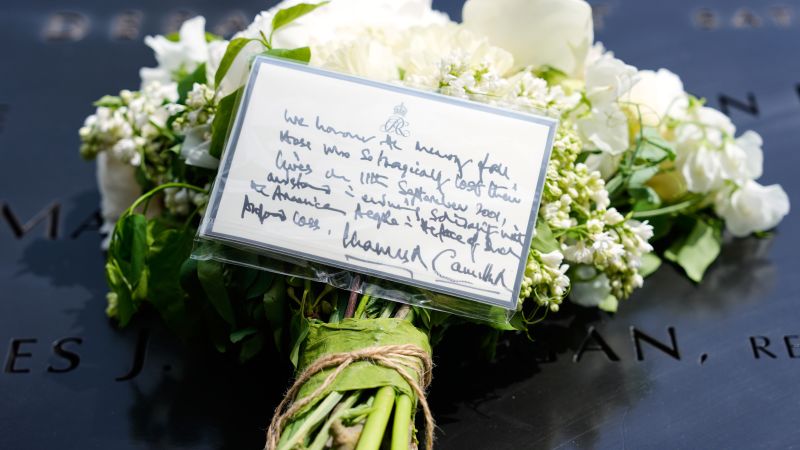 We honour the memory of all
those who so tragically lost their
lives on 11th September 2001, and
stand in enduring solidarity with
the American people in the face of their
profound loss.
Charles R Camilla R
ES J.
AN,
RE